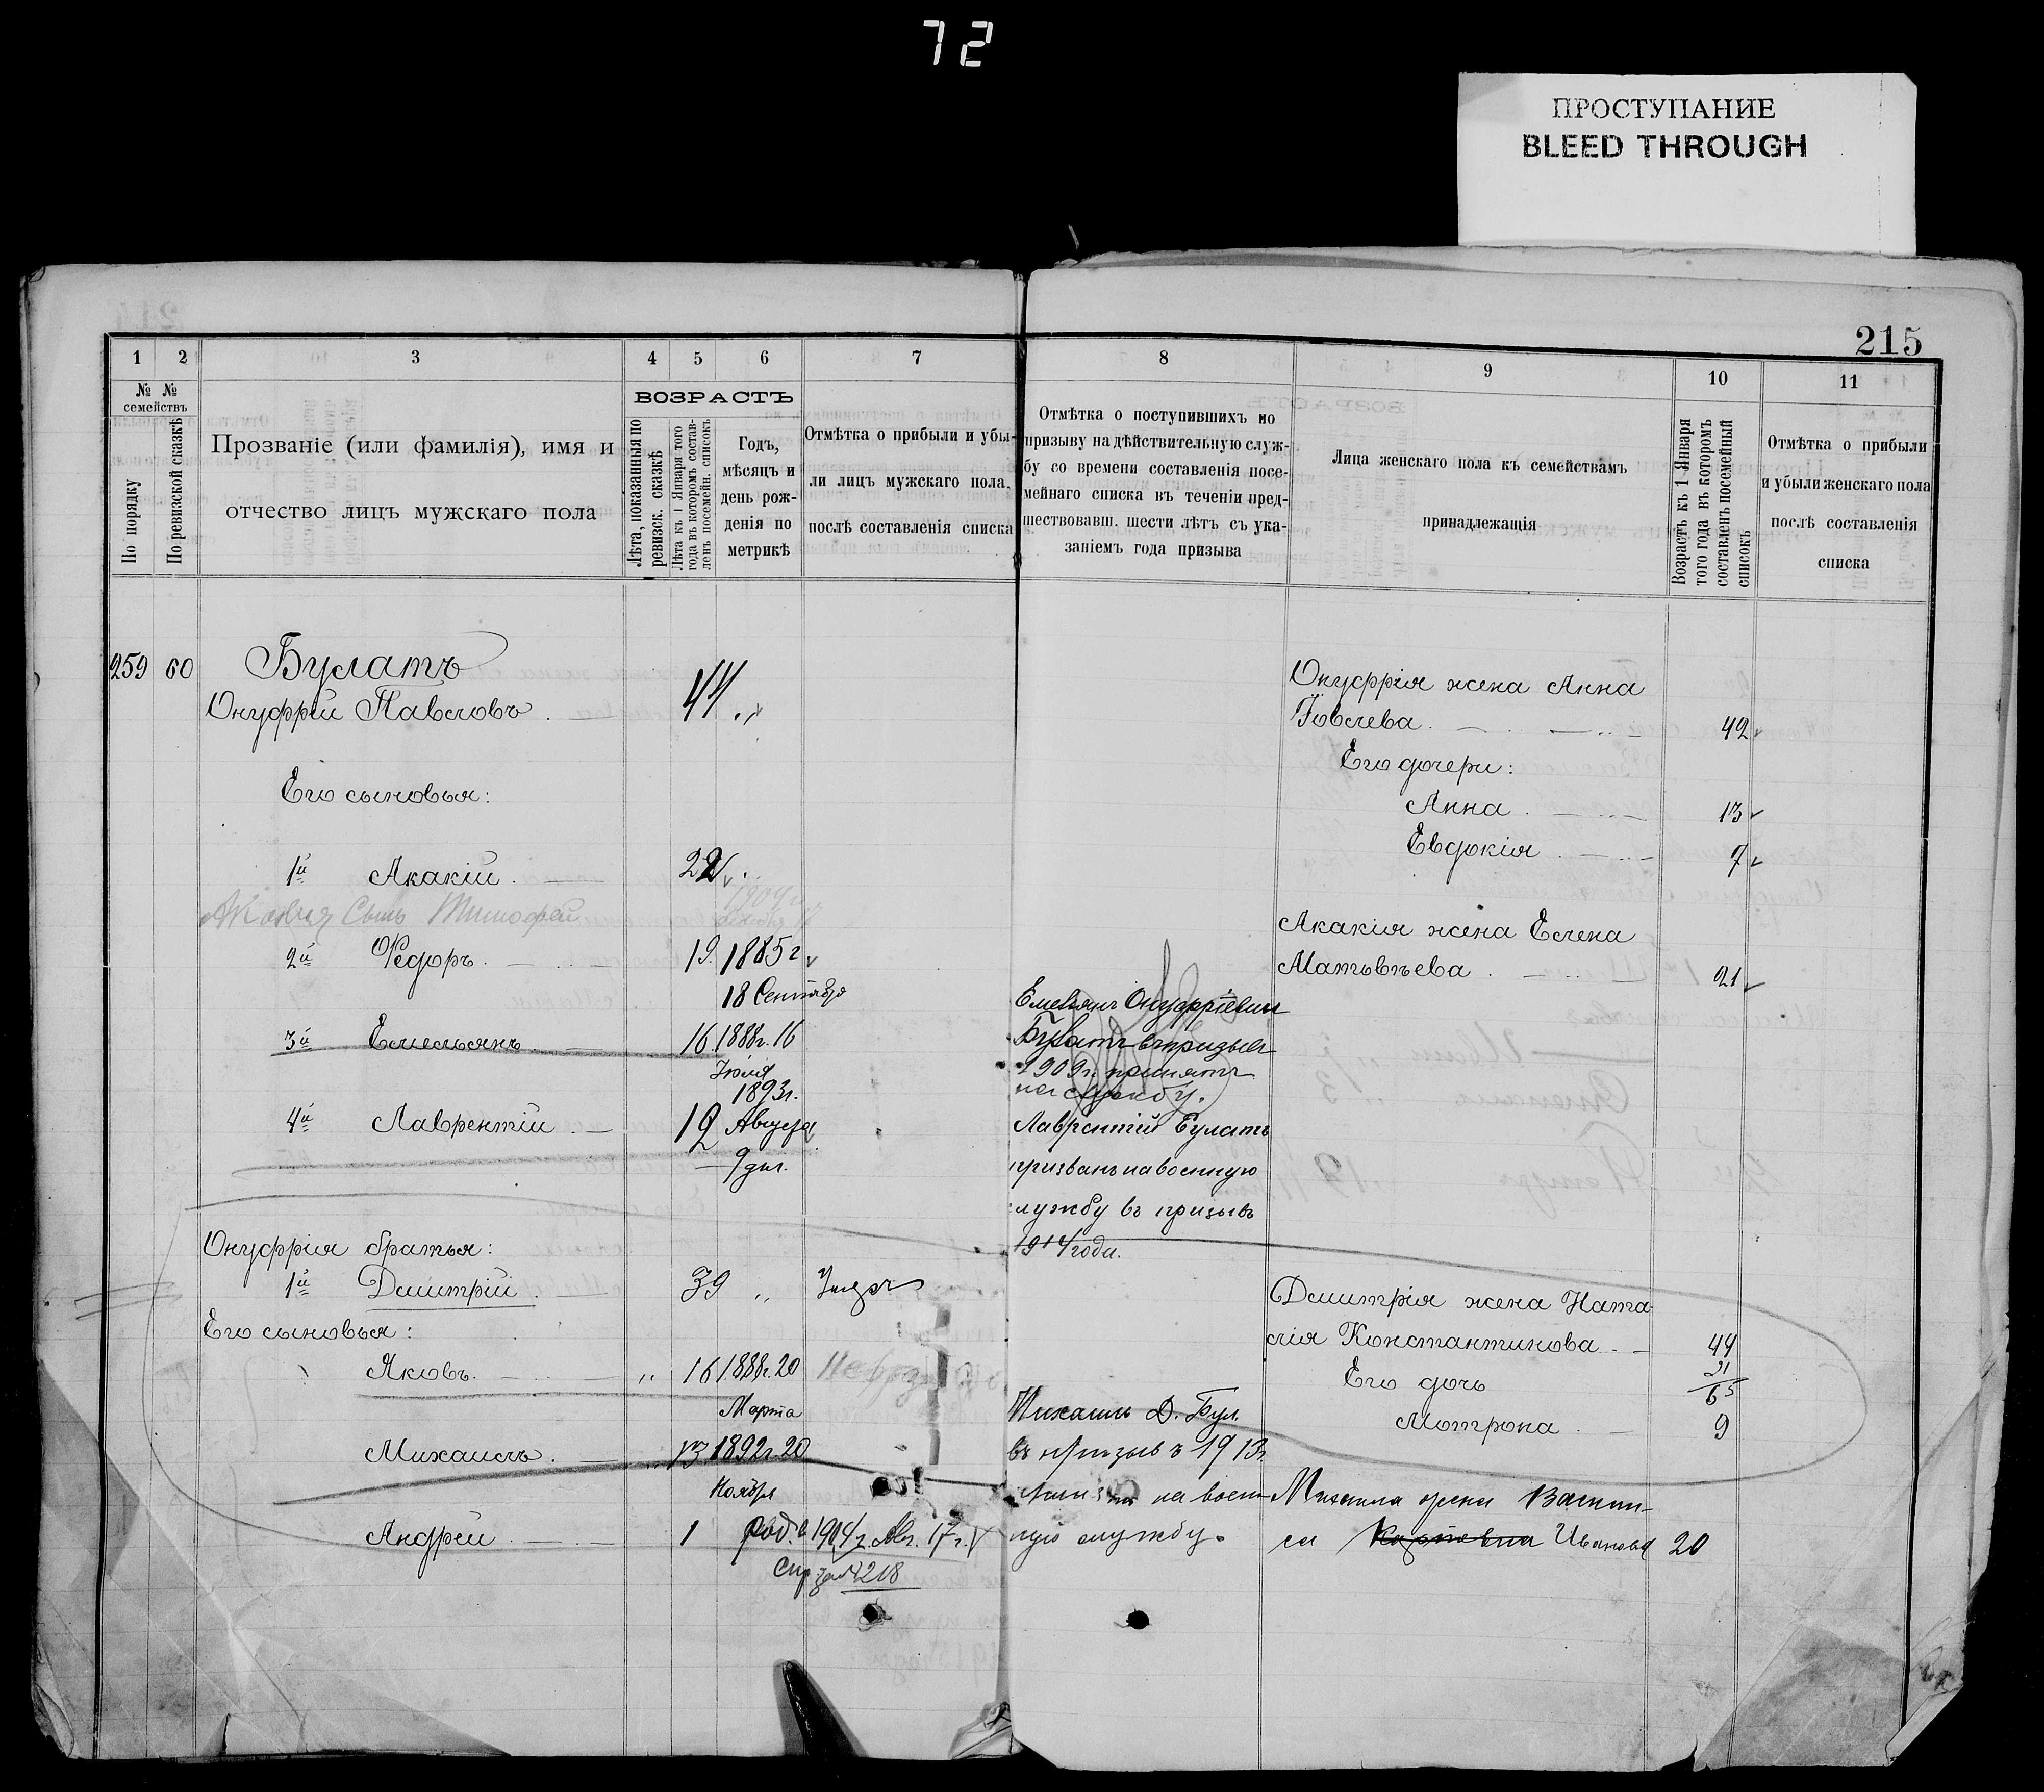 72
ПРОСТУПАНИЕ
BLEED THROUGH
215
1 2 3 4 5 6 7 8 9 10 11
№ № семействъ
По порядку
По ревизской сказкѣ
Прозваніе (или фамилія), имя и
отчество лицъ мужскаго пола
ВОЗРАСТЪ
Лѣта, показанныя по
ревизск. сказкѣ
Лѣта къ 1 Января того
года въ которомъ состав-
ленъ посемейн. списокъ
Годъ,
мѣсяцъ и
день рож-
денія по
метрикѣ
Отмѣтка о прибыли и убы-
ли лицъ мужскаго пола,
послѣ составленія списка
Отмѣтка о поступившихъ по
призыву на дѣйствительную служ-
бу со времени составленія посе-
мейнаго списка въ теченіи пред-
шествовавш. шести лѣтъ съ ука-
заніемъ года призыва
Лица женскаго пола къ семействамъ
принадлежащія
Возрастъ къ 1 Января
того года въ которомъ
составленъ посемейный
списокъ
Отмѣтка о прибыли
и убыли женскаго пола
послѣ составленія
списка
259 60 Булатъ
Онуфрій Павловъ 44
Его сыновья:
1й Акакій 22
Акакия Сынъ Тимофей 1904
2й Ѳедоръ 19. 1885 г
18 Сентября
3й Емельянъ 16. 1888г. 16
Іюля
4й Лаврентій 12 1893г.
Августа
9 дня.
Онуфрія братья:
1й Дмитрій 39 „ Умеръ
Его сыновья:
Яковъ „ 16 1888г. 20
Марта
Михаилъ „ 13. 1892г. 20
Ноября
Андрей 1 род. в 1904 г. Авг. 17 г.
Спр 218
Емельянъ Онуфріевичъ
Булатъ въ призывъ
1909г. принятъ
на службу.
Лаврентій Булатъ
призванъ на военную
службу въ призывъ
1914 года.
Михаилъ Д. Бул.
въ призывъ 1913г
на воен
ную службу.
Онуфрія жена Анна
Іовлева 42
Его дочери:
Анна 13
Евдокія 7
Акакія жена Елена
Матьвѣева 21
Дмитрія жена Ната
лія Константинова 44
21
65
Его дочь
Мотрона 9
Михаила жена Васили-
са Иванова 20